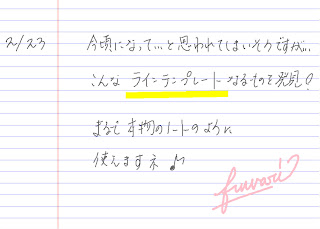 2/23 今頃になって…と思われてはいそうですが…
こんな ラインテンプレート なるものを発見!
まるで 本物のノートのように
使えますネ♪
fuwari